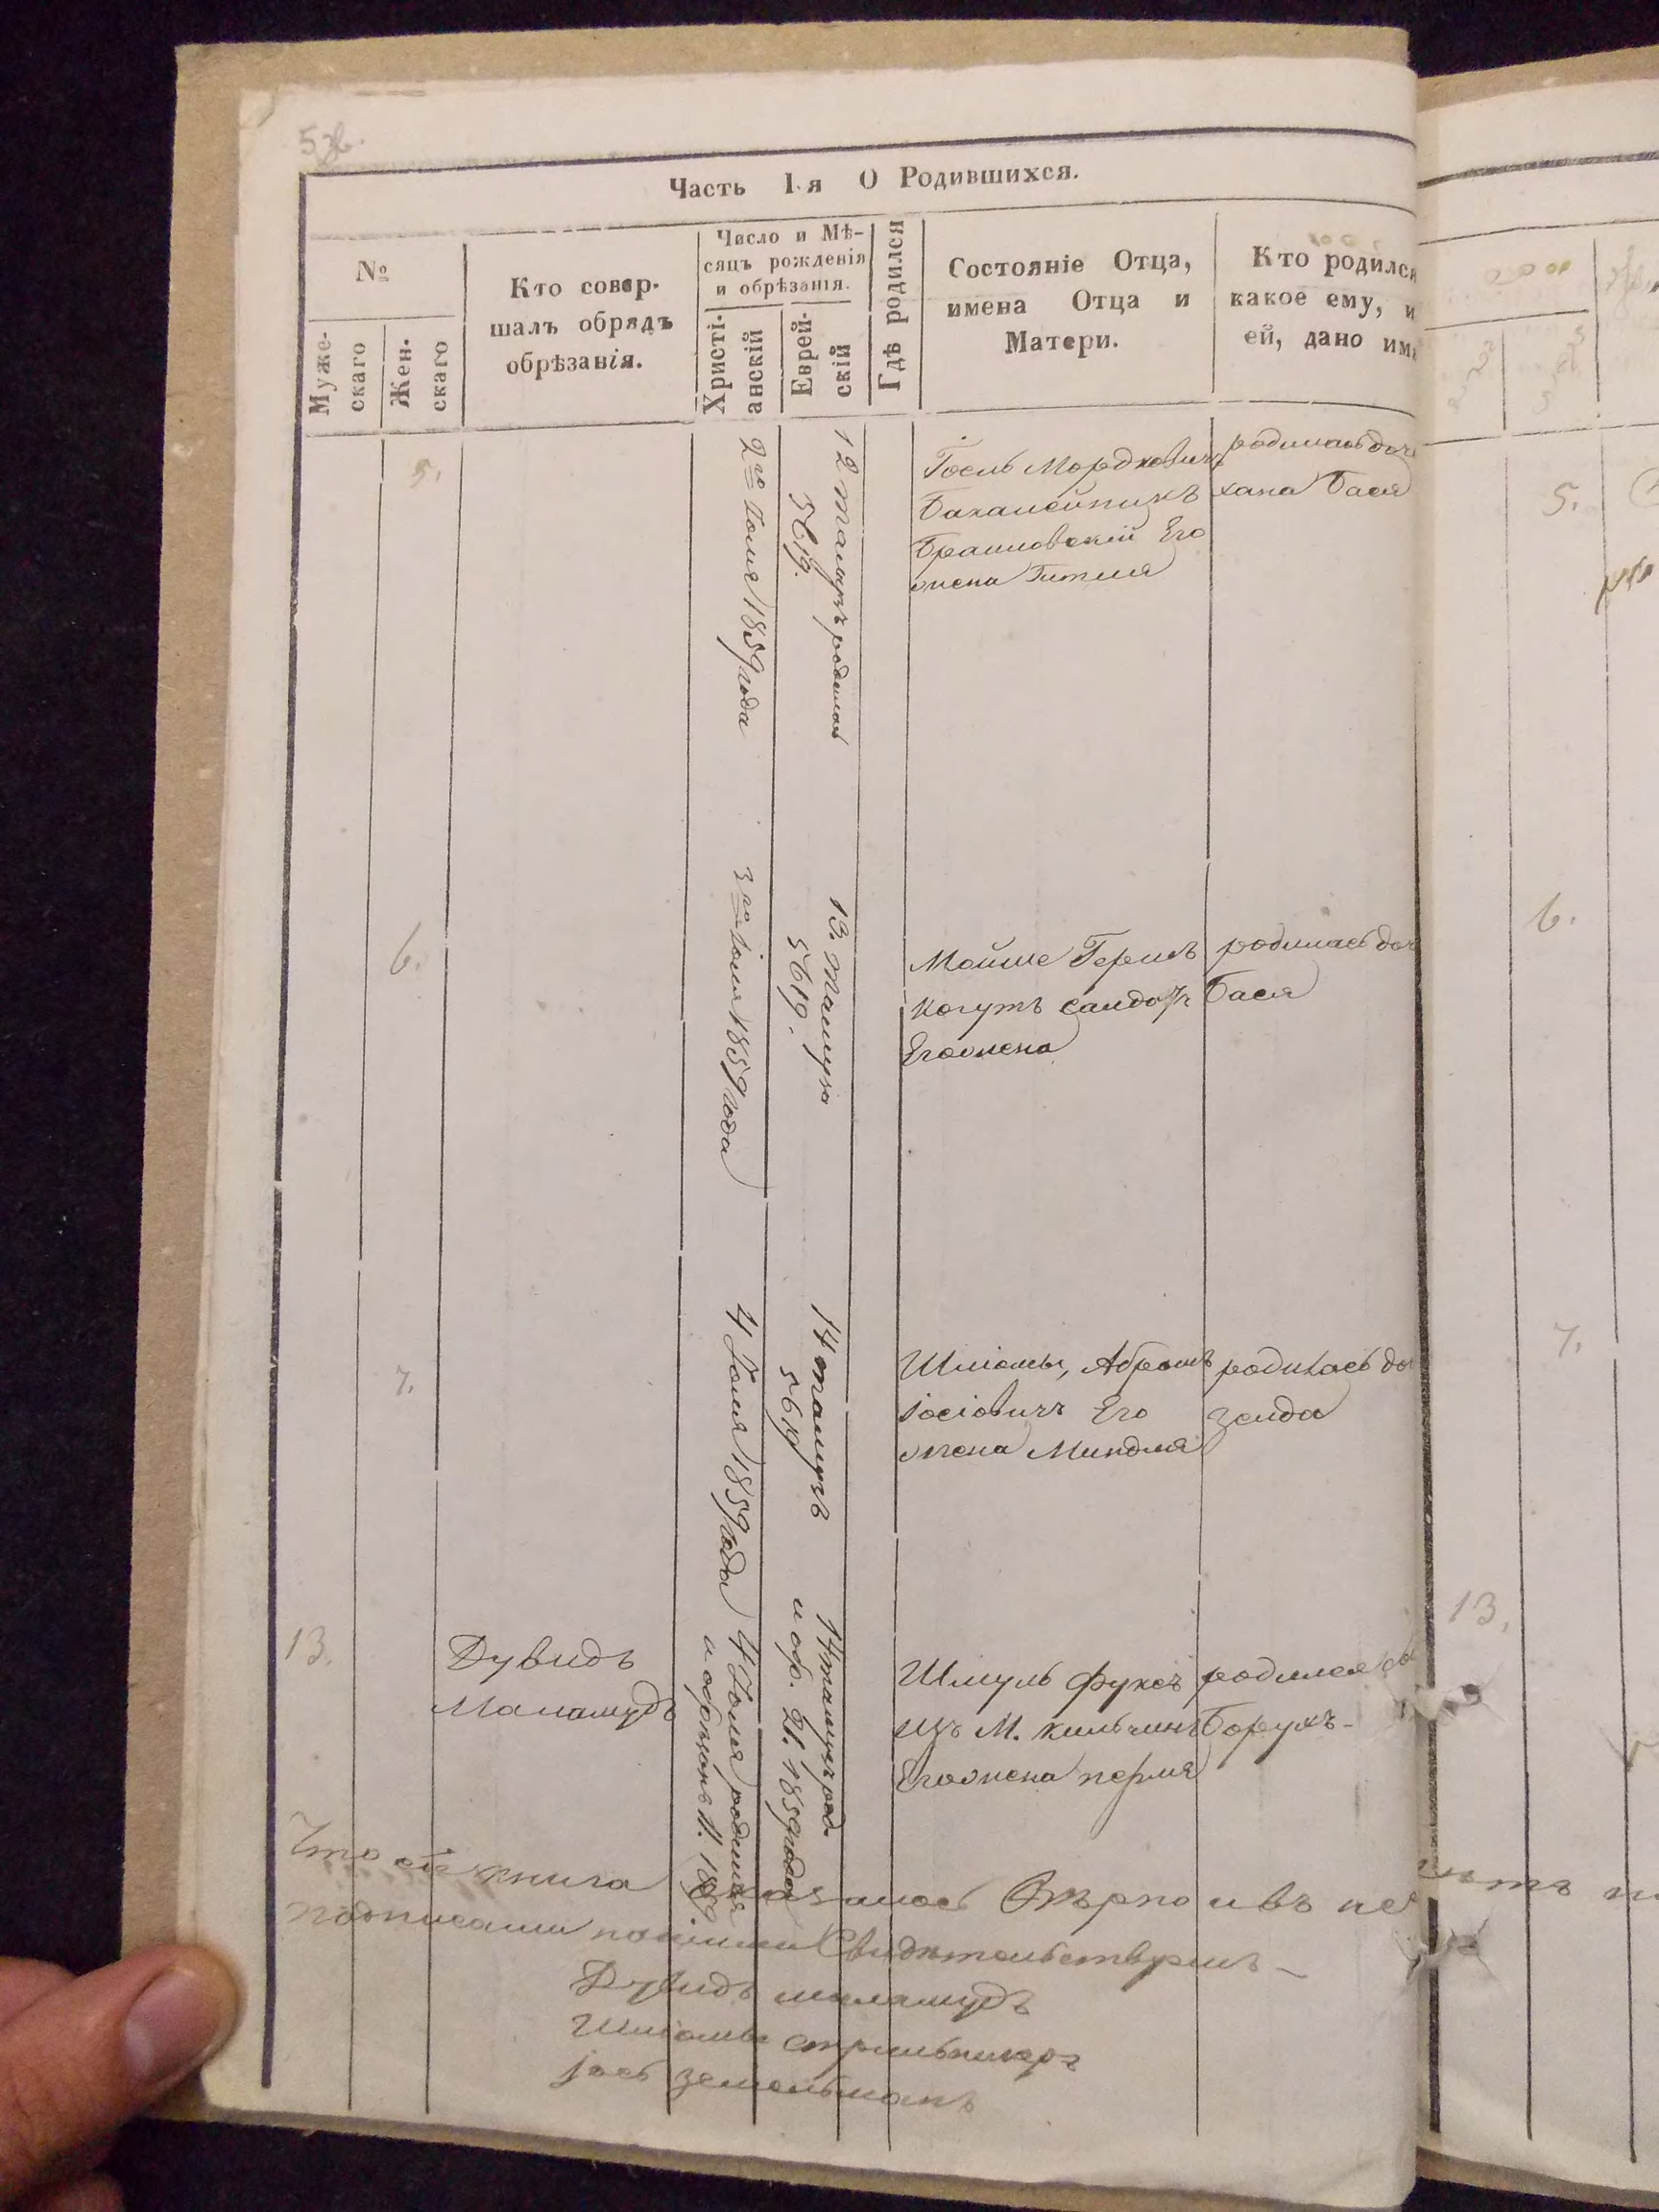 Часть 1-я О Родившихся.
№
Муже-
скаго
Жен-
скаго
Кто совер-
шалъ обрядъ
обрѣзанія.
Число и Мѣ-
сяцъ рожденія
и обрѣзанія.
Христі-
анскій
Еврей-
скій
Гдѣ родился
Состояніе Отца,
имена Отца и
Матери.
Кто родился
какое ему, и
ей, дано им
5.
2го Іюля 1859 года
12 тамузъ родилась
5619.
Госель Мордковичъ
Его
жена Гителя
родилась доч
хана Бася
6.
3го Іюля 1859 года
13. тамуза
5619.
Мойше Гершъ
когутъ
Его жена
родилась доч
Бася
7.
4 Іюля 1859 года
14 тамузъ
5619
Шліомы, Абрамъ
Іосіовичъ Его
жена Миндля
родилась до
зельда
13.
Дувидъ
Маламудъ
4 Іюля родился
и обрѣзанъ 11. 1859.
14 тамузъ род.
и обр. 21. 1859 года
Шмуль Фуксъ
изъ М. кильчинъ
Его жена перля
родился сы
Борухъ-
Что сія книга оказалось вѣрно и въ
подписали Свидѣтельствуемъ-
Дувидъ маламудъ
Шліома
Іось зетельманъ
5.
6.
7.
13.